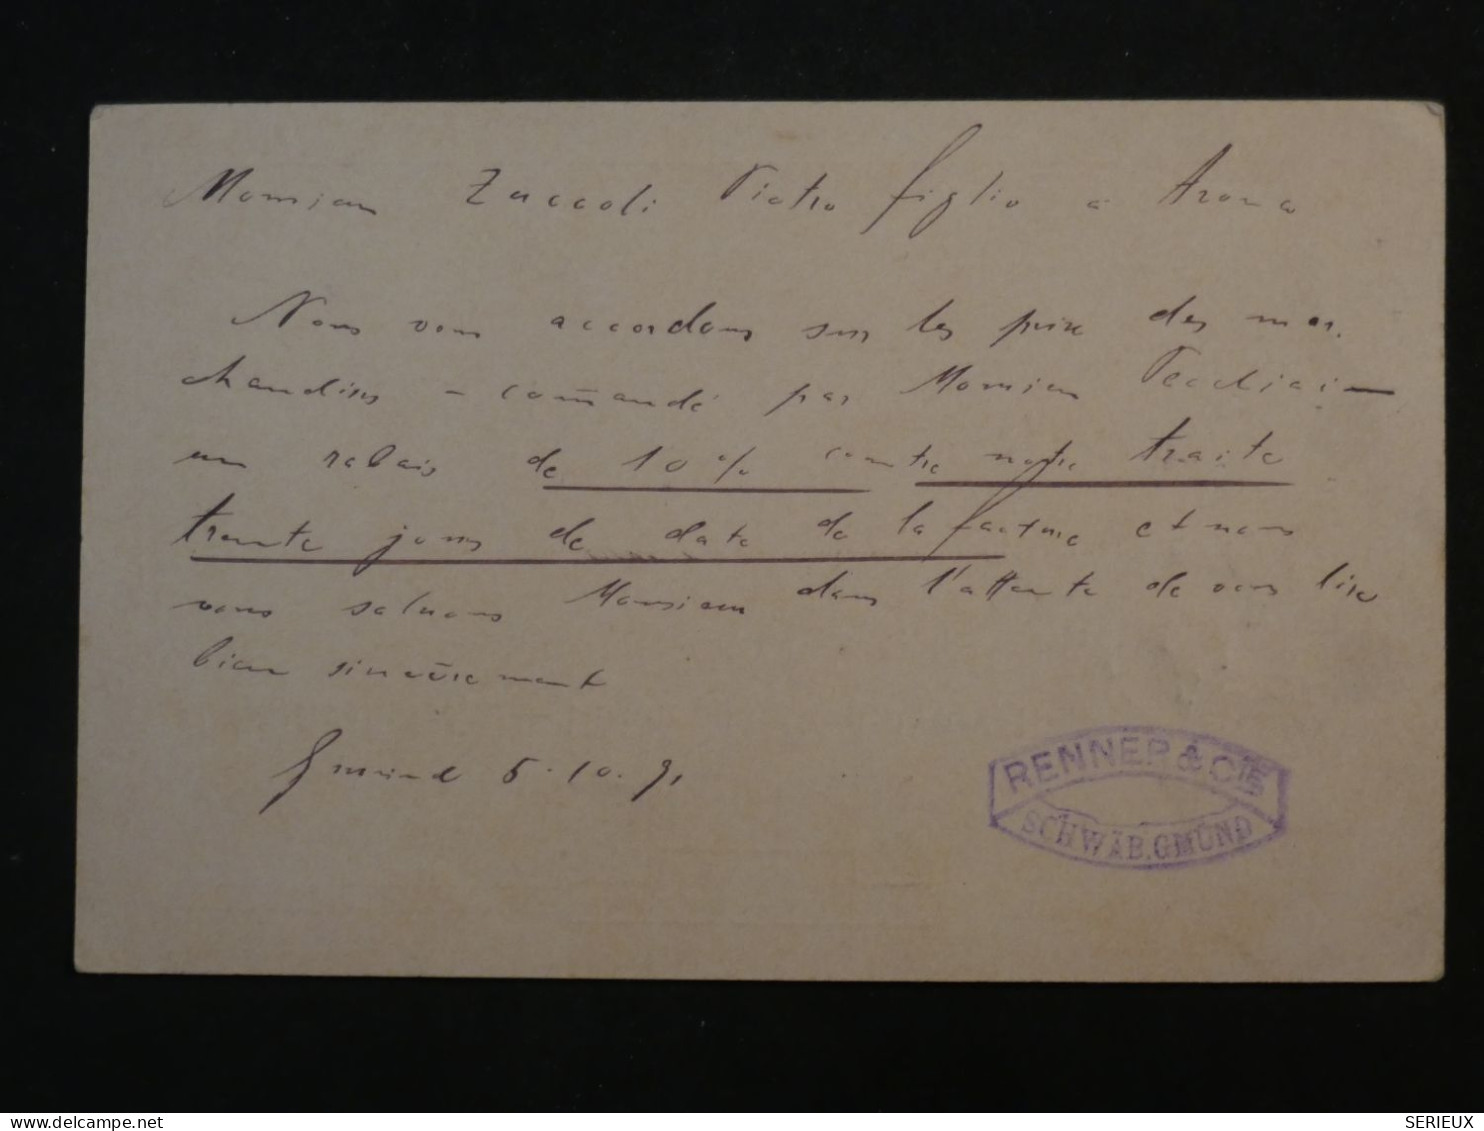 Monsieur Zuccoli Pietro figlio a Arona
Nous vous accordons sur les prix des mar-
chandises - com̄andé par Monsieur
un rabais de 10% contre notre traite
trente jours de date de la facture et nous
vous saluons Monsieur dans l'attente de vous lire
bien sincèrement
Gmünd 5.10.91
RENNER & CIE
SCHWÄB. GMÜND
www.delcampe.net
SERIEUX